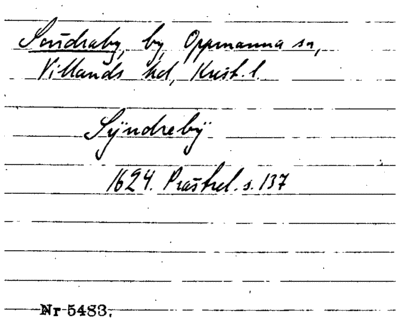 Sondraby, by, Oppmanna sn,
Villands hd, Krist. l.
Sÿndrebÿ
1624. Prästrel. s. 137
Nr 5483.